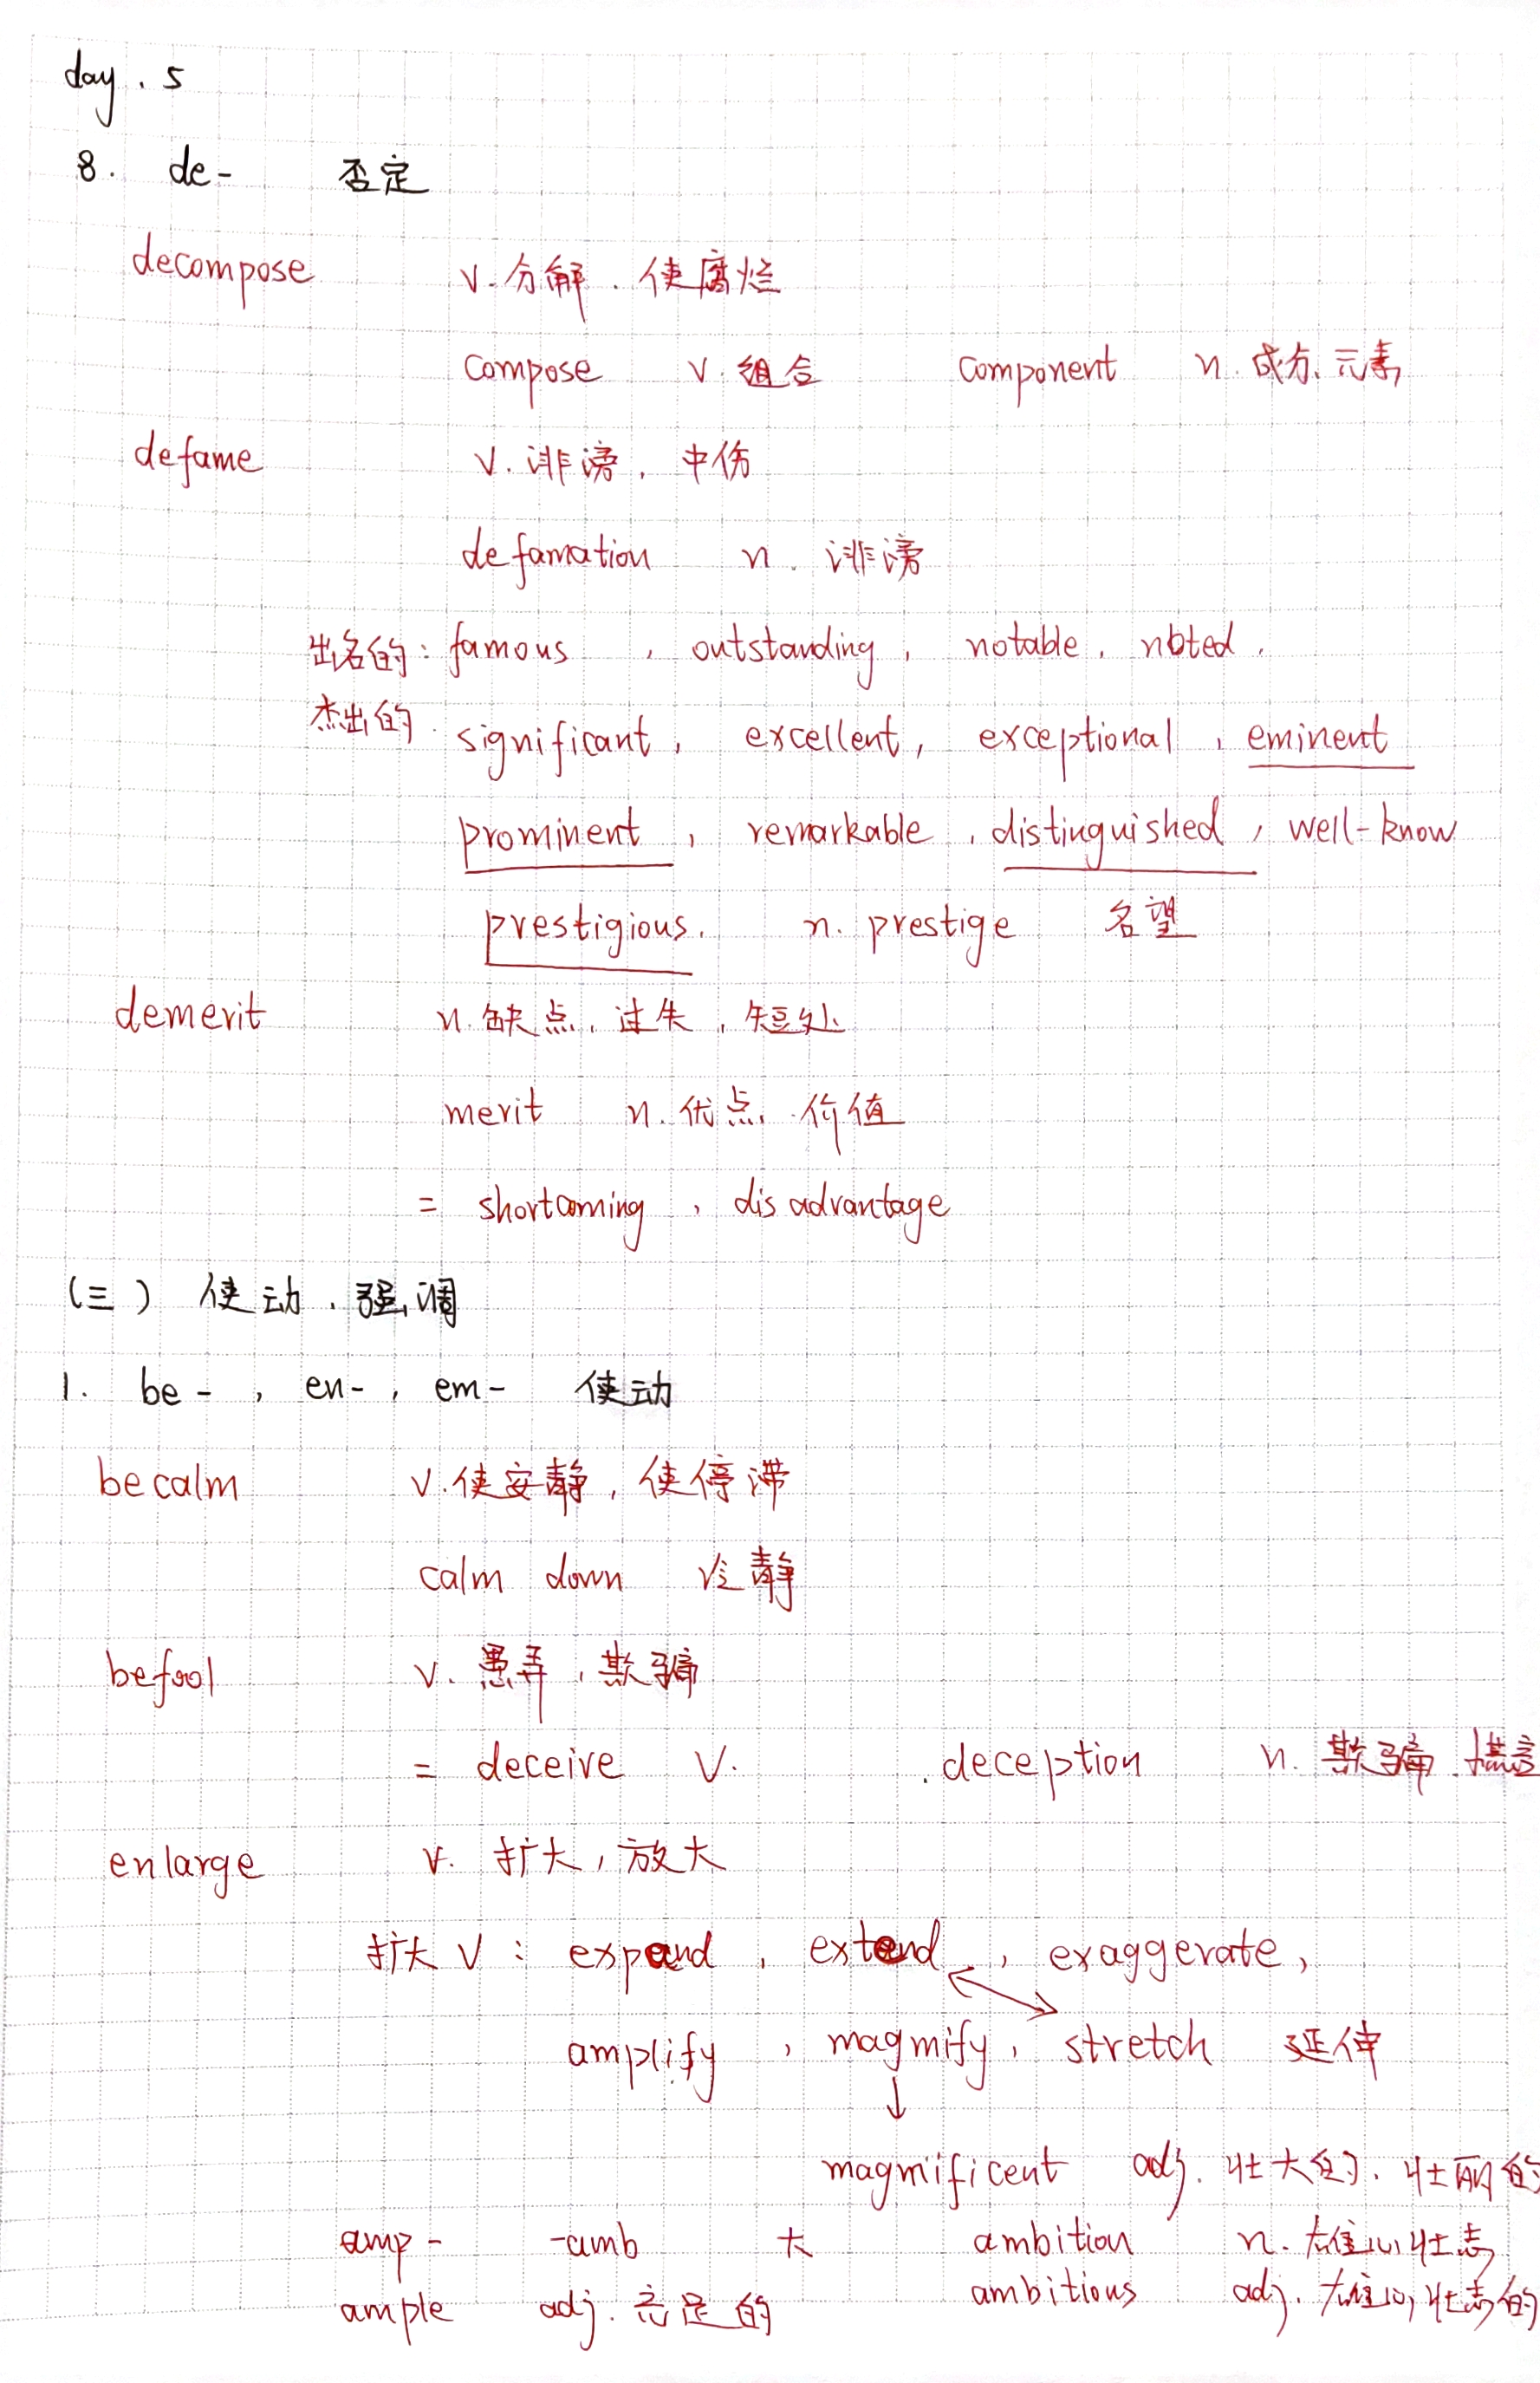 day . 5
8. de- 否定
decompose v. 分解、使腐烂
compose v. 组合 component n. 成分、元素
defame v. 诽谤, 中伤
defamation n. 诽谤
出名的: famous , outstanding , notable , noted ,
杰出的 . significant , excellent , exceptional , eminent
prominent , remarkable , distinguished , well-know
prestigious. n. prestige 名望
demerit n. 缺点, 过失, 短处
merit n. 优点、价值
= shortcoming , disadvantage
(三) 使动、强调
1. be- , en- , em- 使动
becalm v. 使安静, 使停滞
calm down 冷静
befool v. 愚弄, 欺骗
= deceive v. . deception n. 欺骗
enlarge v. 扩大, 放大
扩大 v : expand , extend , exaggerate ,
amplify , magmify , stretch 延伸
magmificent adj. 壮大的、壮丽的
amp- -amb 大 ambition n. 雄心壮志
ample adj. 充足的 ambitious adj. 雄心壮志的